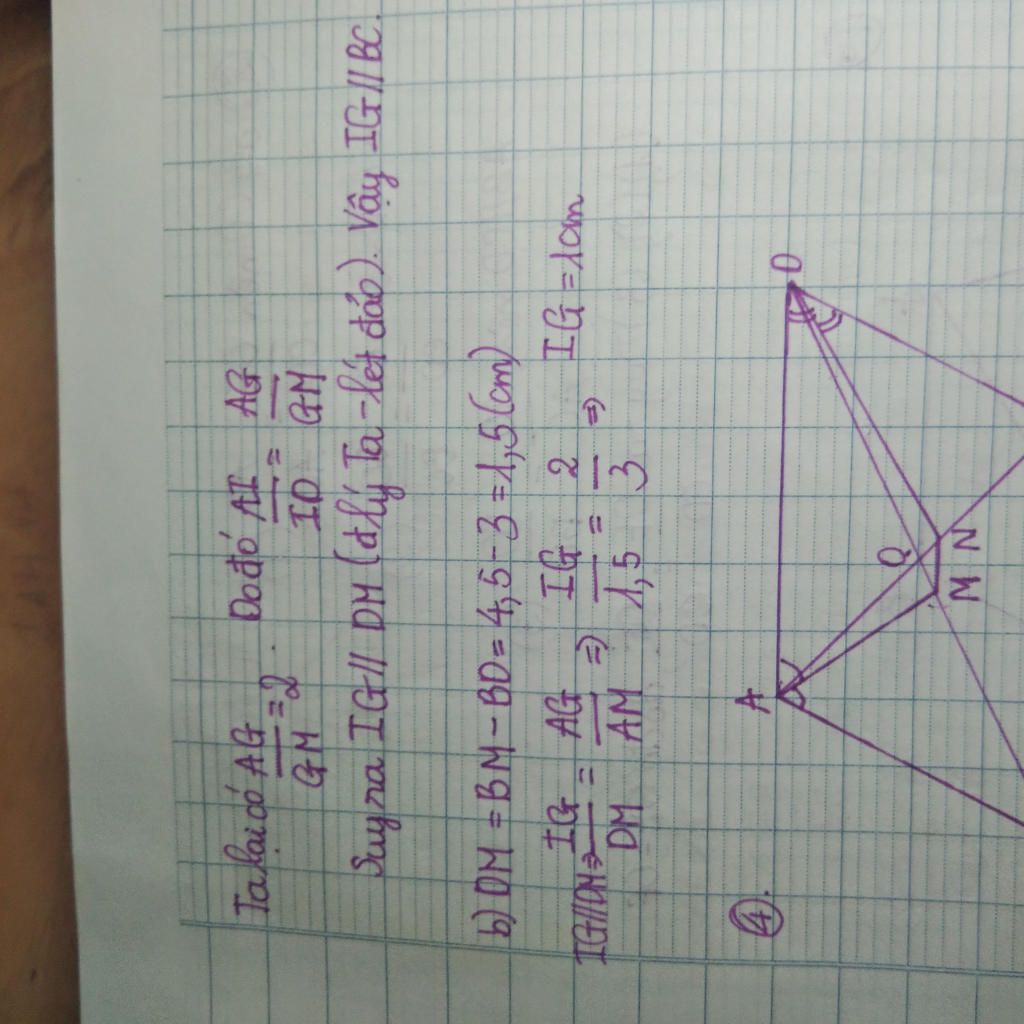 Ta lại có AG/GM = 2. Do đó AI/ID = AG/GM
Suy ra IG // DM (đ.lý Ta-lét đảo). Vậy IG // BC.
b) DM = BM - BD = 4,5 - 3 = 1,5 (cm)
IG // DM => IG/DM = AG/AM => IG/1,5 = 2/3 => IG = 1cm
④.
A
D
O
M
N